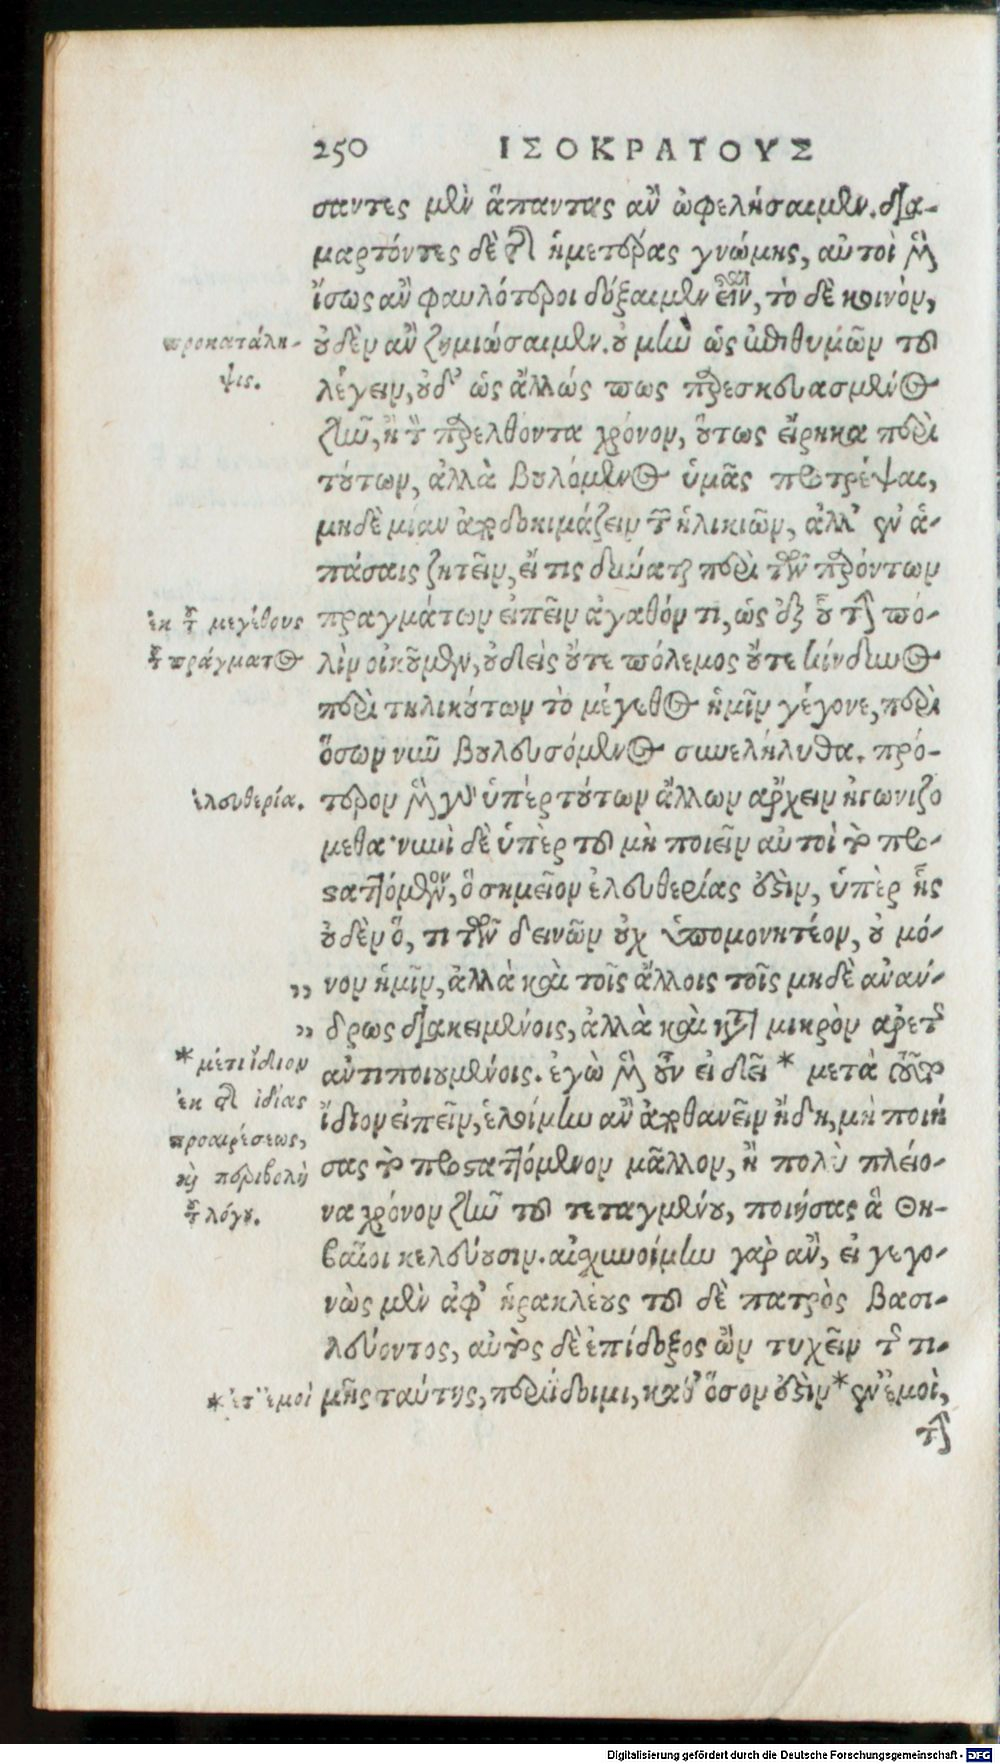 250 ΙΣΟΚΡΑΤΟΥΣ
σαντες μὲν ἅπαντας ἂν ὠφελήσαιμεν. δια-
μαρτόντες δὲ τῆς ἡμετέρας γνώμης, αὐτοὶ μὲν
ἴσως ἂν φαυλότεροι δόξαιμεν εἶναι, τὸ δὲ κοινὸν,
προκατάλη-
ψις.
οὐδὲν ἂν ζημιώσαιμεν. οὐ μὴν ὡς ἐπιθυμῶν τοῦ
λέγειν, οὐδ' ὡς ἄλλώς πως παρεσκευασμένος
ζῆν, ἢ τὸν παρελθόντα χρόνον, οὕτως εἴρηκα περὶ
τούτων, ἀλλὰ βουλόμενος ὑμᾶς προτρέψαι,
μηδὲ μίαν ἀποδοκιμάζειν τῶν ἡλικιῶν, ἀλλ' ἐν ἁ-
πάσαις ζητεῖν, εἴ τις δύναται περὶ τῶν παρόντων
ἐκ τοῦ μεγέθους
τοῦ πράγματος
πραγμάτων εἰπεῖν ἀγαθόν τι, ὡς ἐξ οὗ τὴν πό-
λιν οἰκοῦμεν, οὐδεὶς οὔτε πόλεμος οὔτε κίνδυνος
περὶ τηλικούτων τὸ μέγεθος ἡμῖν γέγονε, περὶ
ὅσων νῦν βουλευσόμενος συνελήλυθα. πρό-
ἐλευθερία.
τερον μὲν γὰρ ὑπέρ τούτων ἄλλων ἄρχειν ἠγωνιζό
μεθα· νυνὶ δὲ ὑπὲρ τοῦ μὴ ποιεῖν αὐτοὶ τὸ προ-
σαττόμενον, ὃ σημεῖον ἐλευθερίας ἐστὶν, ὑπὲρ ἧς
οὐδὲν ὅ, τι τῶν δεινῶν οὐχ ὑπομονητέον, οὐ μό-
„ νον ἡμῖν, ἀλλὰ καὶ τοῖς ἄλλοις τοῖς μηδὲ ἀνάν-
„ δρως διακειμένοις, ἀλλὰ καὶ κατὰ μικρὸν ἀρετῆς
* μέτι ἴδιον
ἐκ τῆς ἰδίας
προαιρέσεως,
καὶ περιβολὴ
τοῦ λόγου.
ἀντιποιουμένοις. ἐγὼ μὲν οὖν εἰ δεῖ * μετὰ τοῦτο
ἴδιον εἰπεῖν, ἑλοίμην ἂν ἀποθανεῖν ἤδη, μὴ ποιή
σας τὸ προσαττόμενον μᾶλλον, ἢ πολὺ πλείο-
να χρόνον ζῆν τοῦ τεταγμένου, ποιήσας ἃ Θη-
βαῖοι κελεύουσιν. αἰσχυνοίμην γὰρ ἂν, εἰ γεγο-
νὼς μὲν ἀφ' ἡρακλέους τοῦ δὲ πατρὸς βασι-
λεύοντος, αὐτὸς δὲ ἐπίδοξος ὢν τυχεῖν τῆς τι-
* ἐπ' ἐμοὶ
μῆς ταύτης, περιίδοιμι, καθ' ὅσον ἐστὶν * ἐν ἐμοὶ,
τὴν